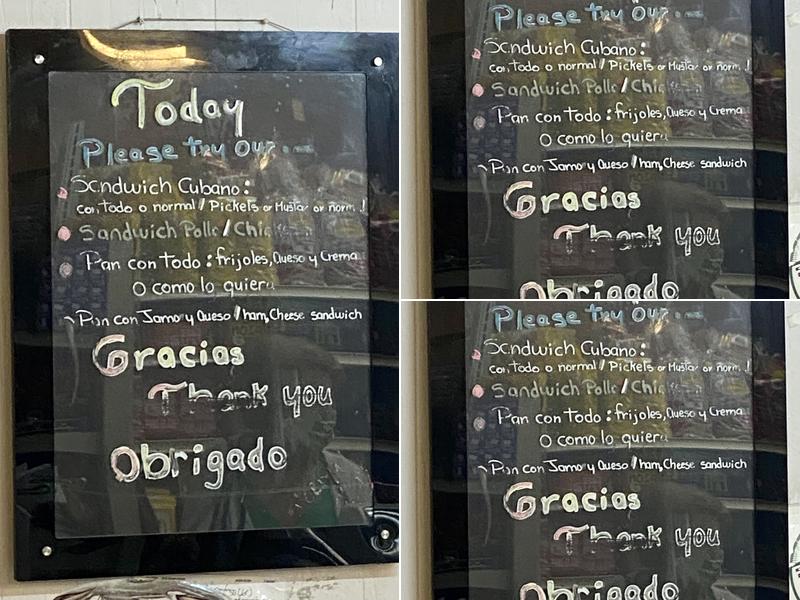 Today
Please try Our...
Sandwich Cubano:
con todo o normal / Pickels or Musta or norm
Sandwich Pollo / Chic
Pan con todo: frijoles, Queso y Crema
O como lo quiera
Pan con Jamo y Queso / ham, Cheese sandwich
Gracias
Thank you
Obrigado
Please try Our...
Sandwich Cubano:
con todo o normal / Pickels or Musta or norm
Sandwich Pollo / Chic
Pan con todo: frijoles, Queso y Crema
O como lo quiera
Pan con Jamo y Queso / ham, Cheese sandwich
Gracias
Thank you
Obrigado
Please try Our...
Sandwich Cubano:
con todo o normal / Pickels or Musta or norm
Sandwich Pollo / Chic
Pan con todo: frijoles, Queso y Crema
O como lo quiera
Pan con Jamo y Queso / ham, Cheese sandwich
Gracias
Thank you
Obrigado